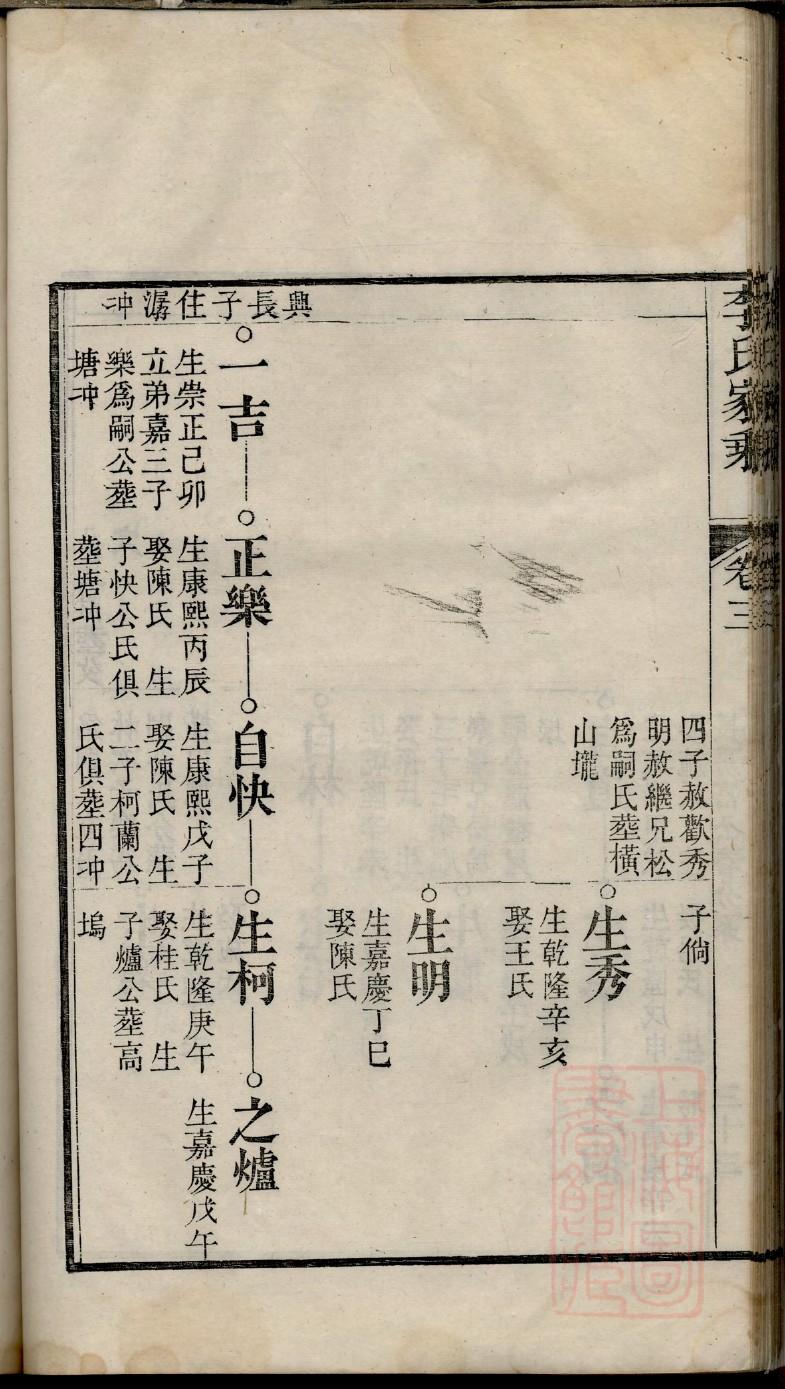 李氏家乘
卷三
四子赦歡秀
明赦繼兄松
爲嗣氏塟橫
山壠
子倘
生秀
生乾隆辛亥
娶王氏
生明
生嘉慶丁巳
娶陳氏
興長子住潺冲
一吉
生崇正己卯
立弟嘉三子
樂爲嗣公塟
塘冲
正樂
生康熙丙辰
娶陳氏 生
子快公氏俱
塟塘冲
自快
生康熙戊子
娶陳氏 生
二子柯蘭公
氏俱塟四冲
生柯
生乾隆庚午
娶桂氏 生
子爐公塟高
塢
之爐
生嘉慶戊午